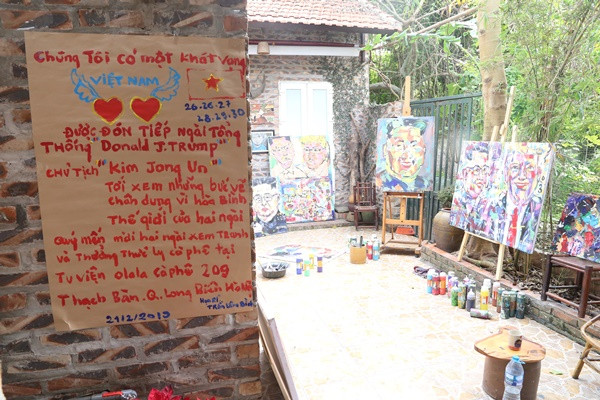 Chúng Tôi có một khát vọng
VIỆT NAM
26-26-27
28.29.30
ĐƯỢC ĐÓN TIẾP NGÀI TỔNG
THỐNG "Donald J.TRUMP"
CHỦ TỊCH "Kim Jong Un"
Tới xem những bức vẽ
chân dung vì hòa Bình
Thế giới của hai ngài
Quý mến mời hai ngài xem Tranh
và Thưởng Thức ly cà phê tại
Tư viện olala cà phê 209
Thạch Bàn.Q.Long Biên Hà Nội
Họa Sĩ
Trần Lâm Bình
21/2/2019